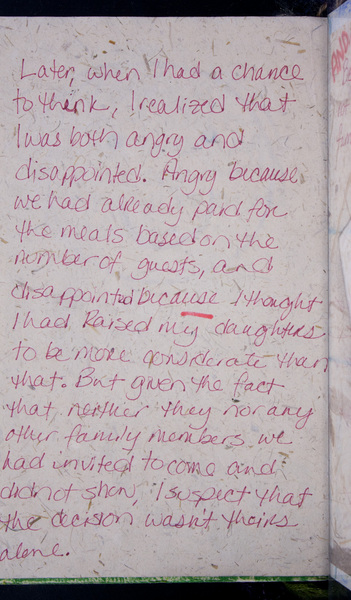 Later, when I had a chance
to think, I realized that
I was both angry and
disappointed. Angry because
we had already paid for
the meals based on the
number of guests, and
disappointed because I thought
I had Raised my daughters
to be more considerate than
that. But given the fact
that, neither they nor any
other family members we
had invited to come and
did not show, I suspect that
the decision wasn't theirs
alone.
AND